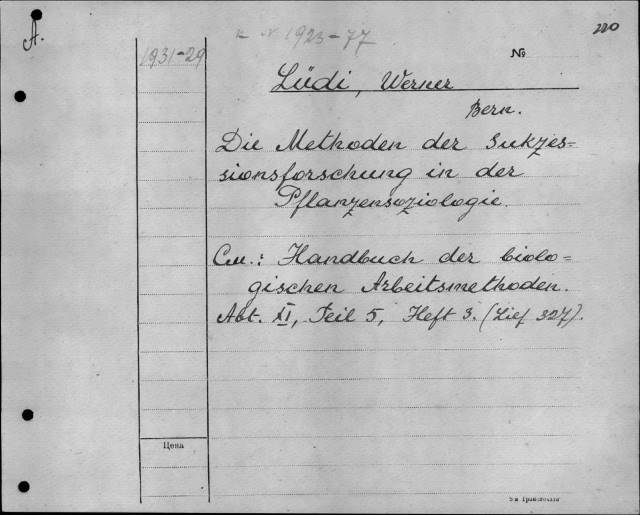 A.
220
к N 1923-77
1931-29
№
Lüdi, Werner
Bern.
Die Methoden der Sukzes=
sionsforschung in der
Pflanzensoziologie.
См.: Handbuch der biolo=
gischen Arbeitsmethoden.
Abt. XI, Teil 5, Heft 3. (Lief 327).
Цена